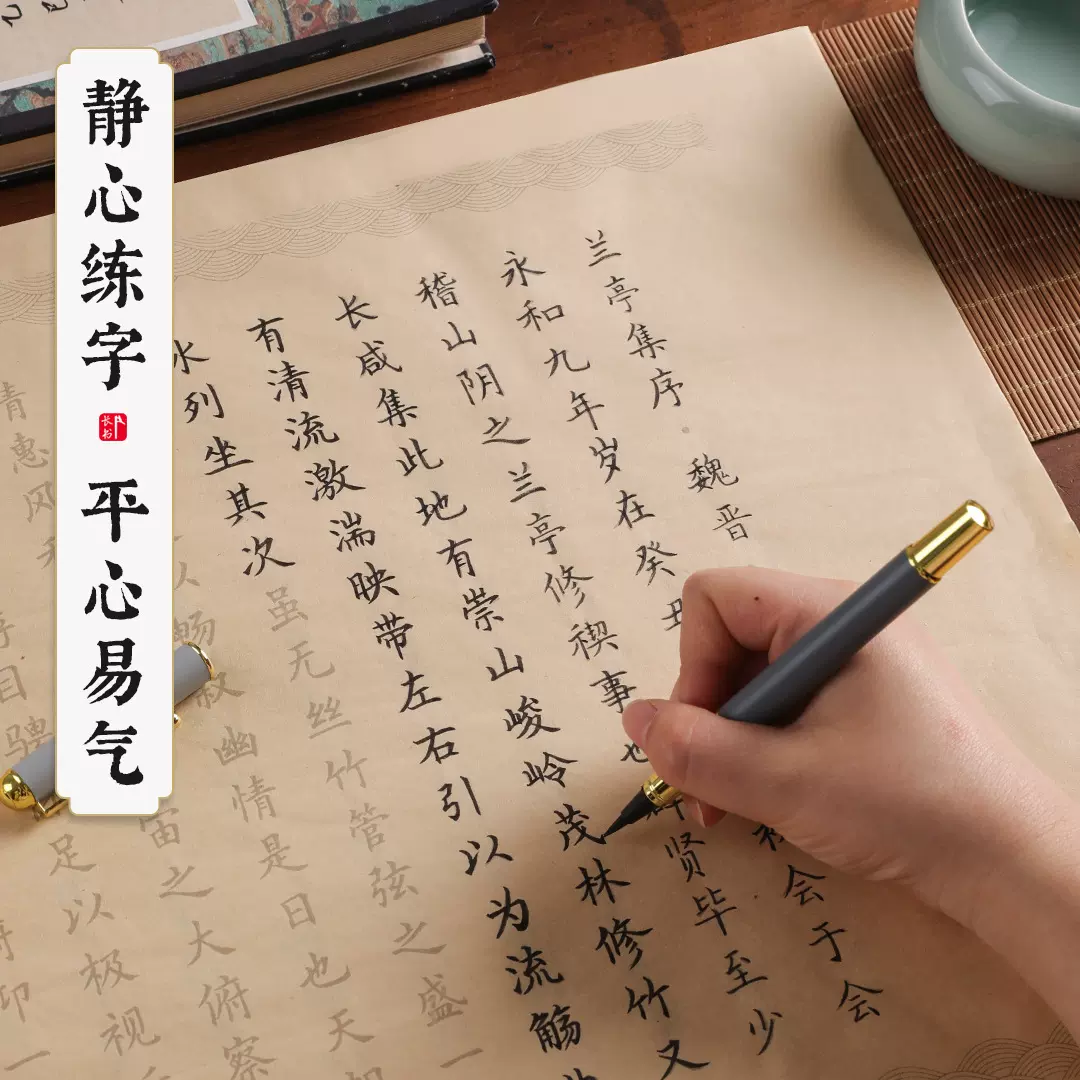 静心练字 平心易气
兰亭集序 魏晋
永和九年岁在癸丑 会于会
稽山阴之兰亭修禊事也 贤毕至少
长咸集此地有崇山峻岭茂林修竹又
有清流激湍映带左右引以为流觞
水列坐其次虽无丝竹管弦之盛一
以畅叙幽情是日也天
惠风 宙之大俯察
目骋 足以极视
仰一